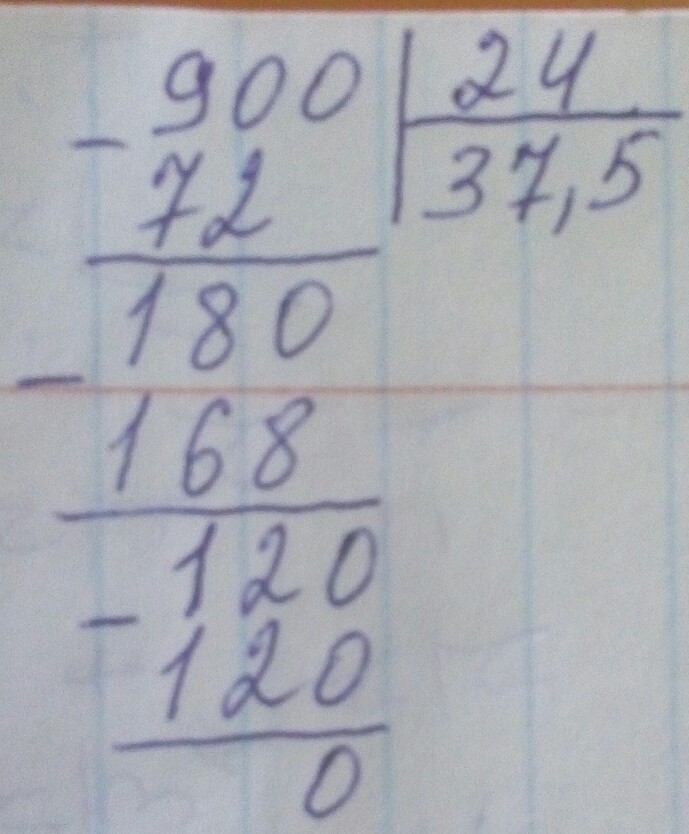 900 | 24
- 72 | 37,5
180
- 168
120
- 120
0